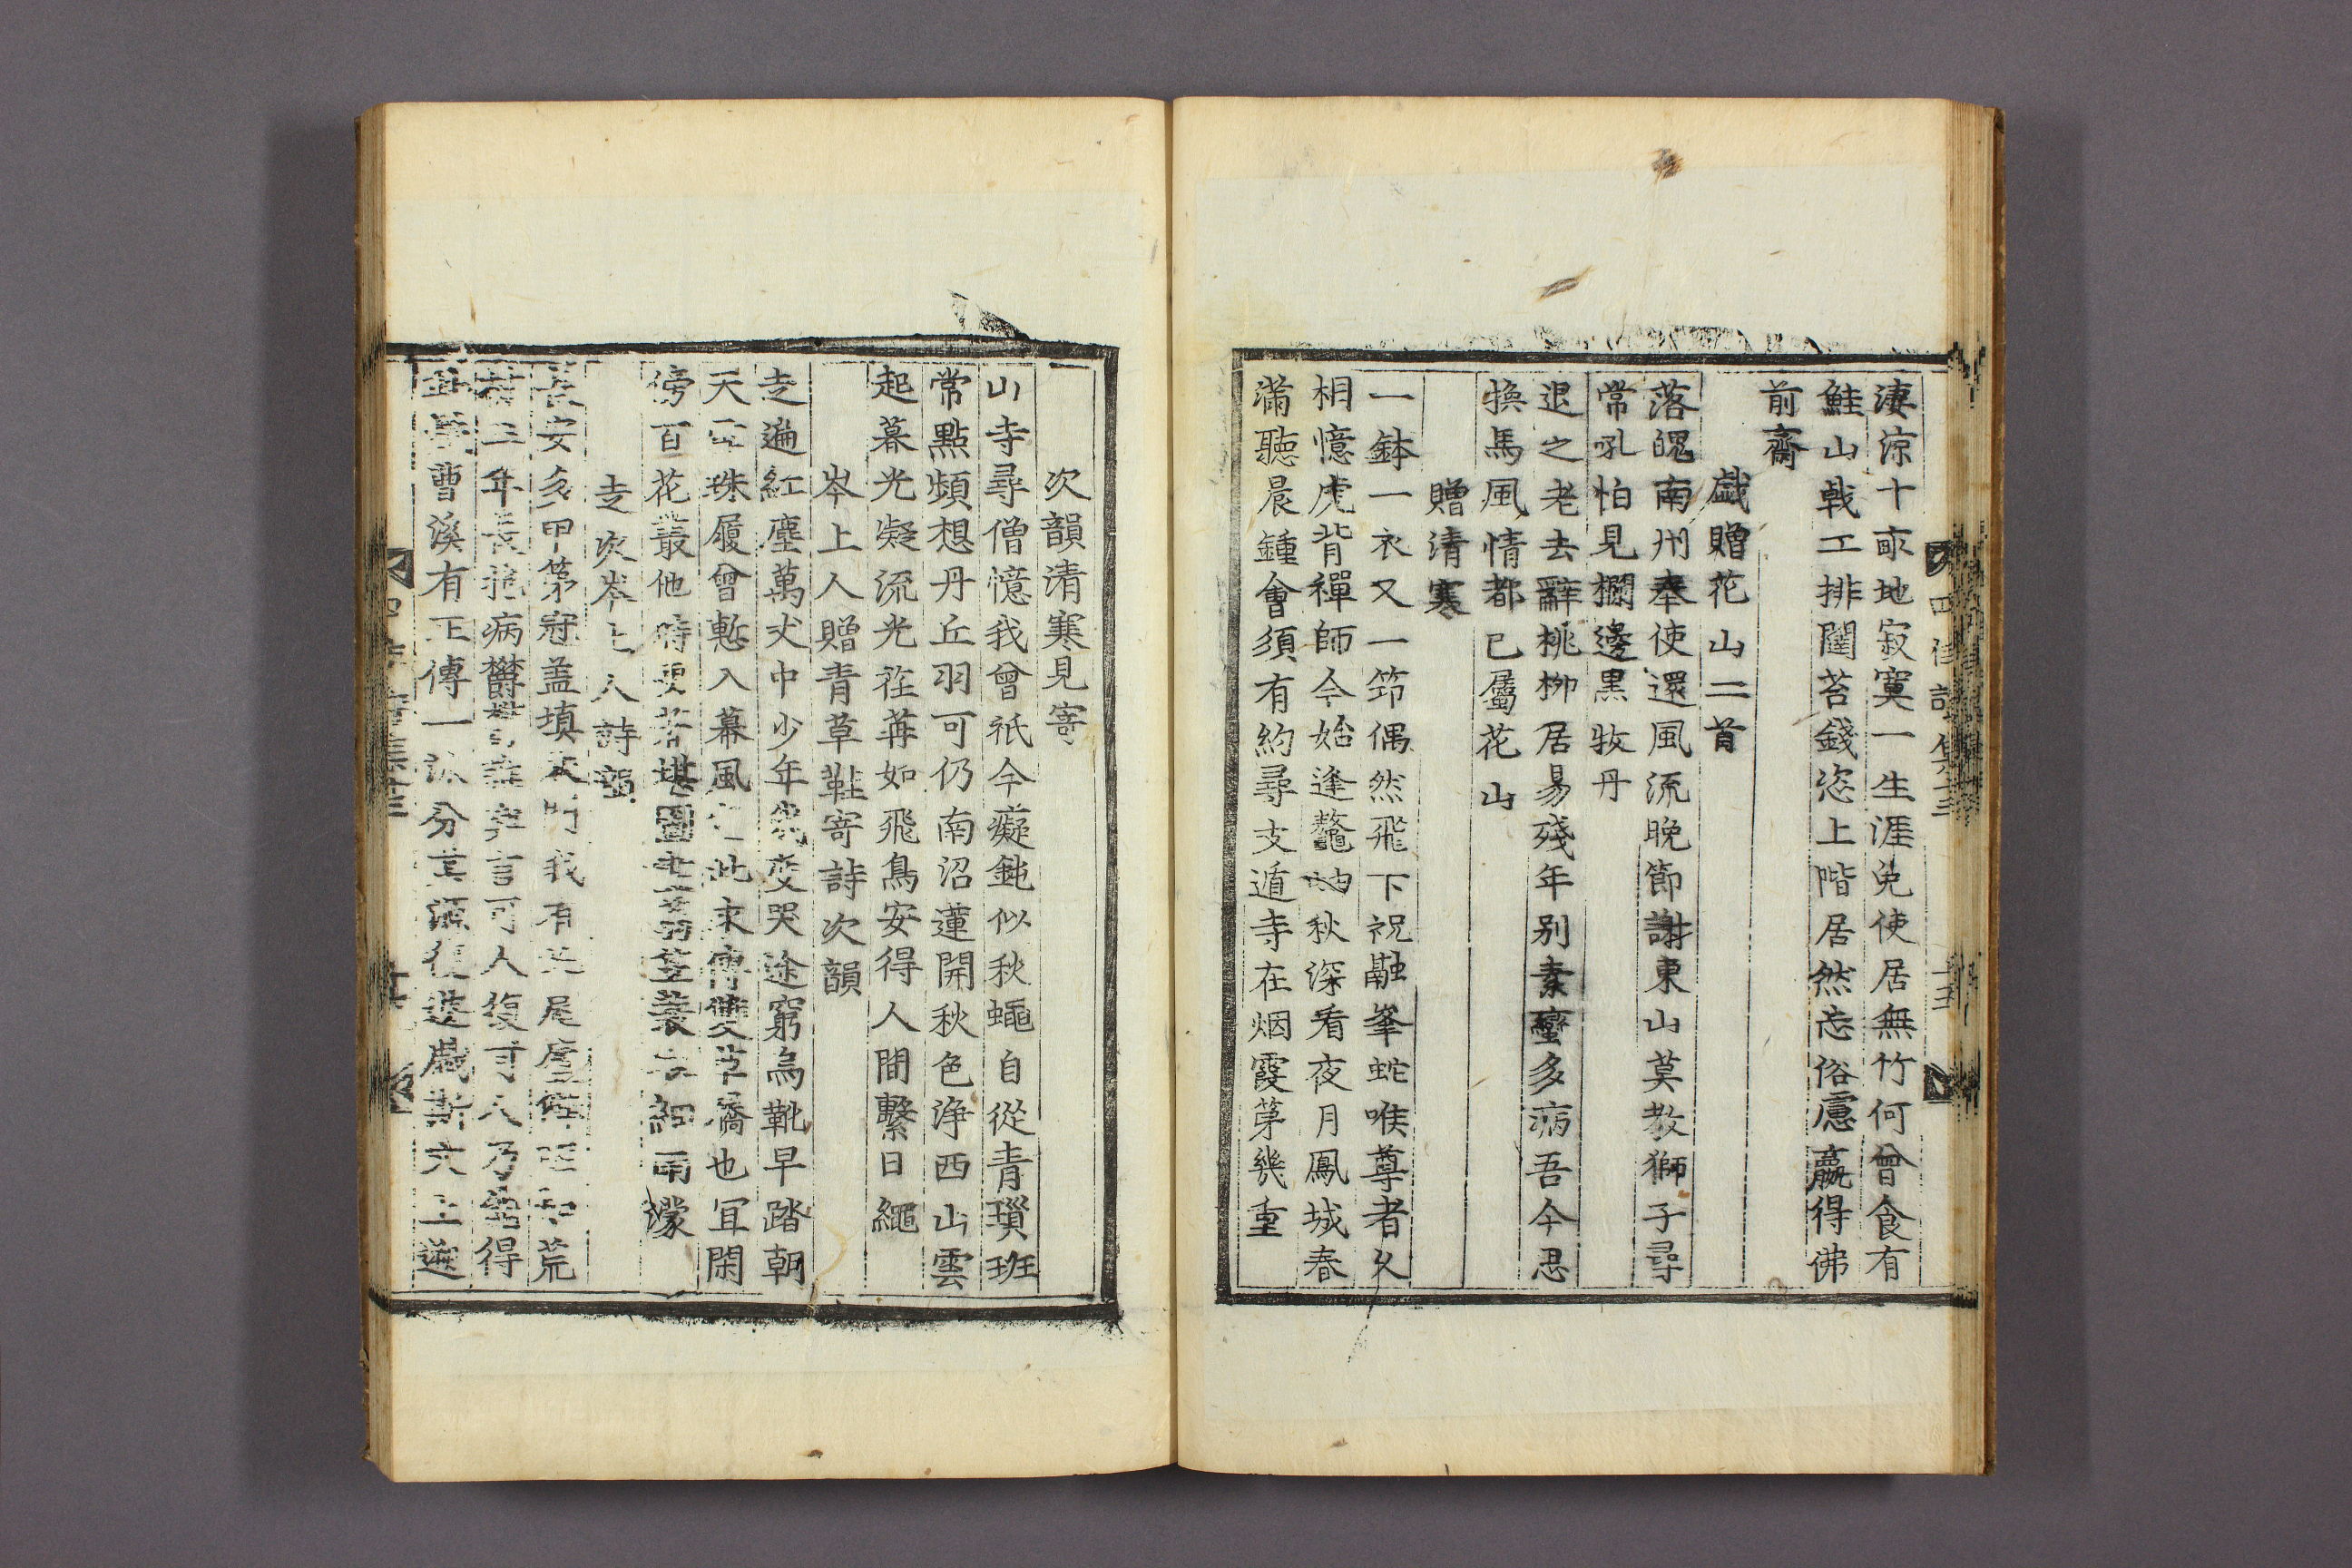 淒涼十畝地寂寞一生涯免使居無竹何曾食有
鮭山戟工排闥苔錢恣上階居然忘俗慮嬴得佛
前齋
戯贈花山二首
落魄南州奉使還風流晚節謝東山莫教獅子尋
常吼怕見欄邊黒牧丹
退之老去辭桃柳居易殘年别素蠻多病吾今思
換馬風情都已屬花山
贈清寒
一鉢一衣又一笻偶然飛下祝融峯蛇喉尊者久
相憶虎背禪師今始逢鼇岫秋深看夜月鳳城春
滿聽晨鍾會須有約尋支遁寺在烟霞第幾重
次韻清寒見寄
山寺尋僧憶我曾祇今癡鈍似秋蠅自從青瑣班
常點頻想丹丘羽可仍南沼蓮開秋色浄西山雲
起暮光凝流光荏苒如飛鳥安得人間繫日繩
岑上人贈青草鞋寄詩次韻
走遍紅塵萬丈中少年哭途窮烏靴早踏朝
天珠履曾慙入幕風此來傳雙草屩也冝閑
傍百花叢他時更堪圖細雨濛
走次岑上人詩韻
安多甲第冠盖填我有荒
三年病鬱言可人復可人乃得
曹溪有正傳一派分其源復遊戯斯文上遊